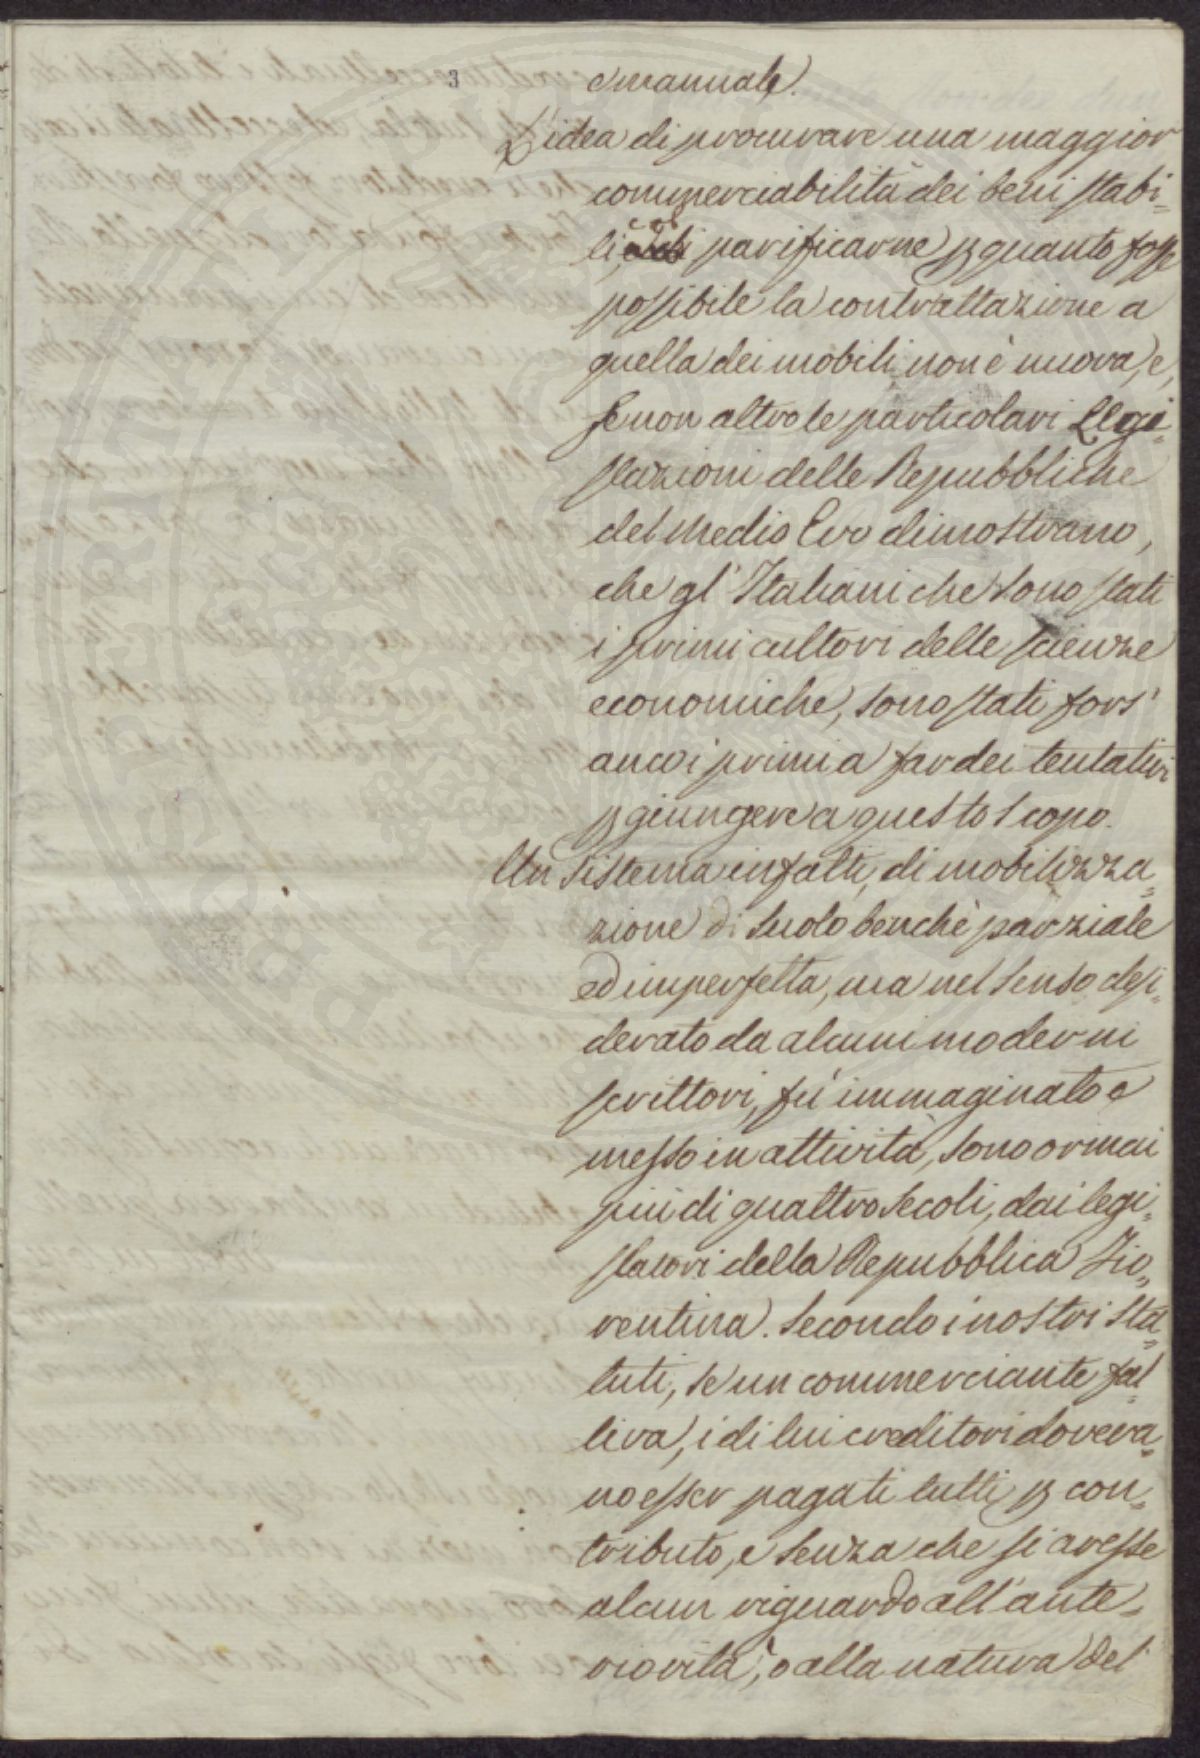 3
emanuale.
L'idea di procurare una maggior
commerciabilità dei beni stabi-
li, e di parificarne p quanto fosse
possibile la contrattazione a
quella dei mobili, non è nuova, e,
se non altro le particolari Legi-
slazioni delle Repubbliche
del Medio Evo dimostrano,
che gl'Italiani che sono stati
i primi cultori delle scienze
economiche, sono stati fors'
anco i primi a far dei tentativi
p giungere a questo scopo.
Un sistema infatti, di mobilizza-
zione di suolo benchè parziale
ed imperfetta, ma nel senso desi-
derato da alcuni moderni
scrittori, fù immaginato e
messo in attività, sono ormai
più di quattro secoli, dai legi-
slatori della Repubblica Fio-
rentina. Secondo i nostri sta-
tuti, se un commerciante fal-
liva, i di lui creditori doveva-
no esser pagati tutti p con-
tributo, e senza che si avesse
alcun riguardo all'ante-
riorità, o alla natura del